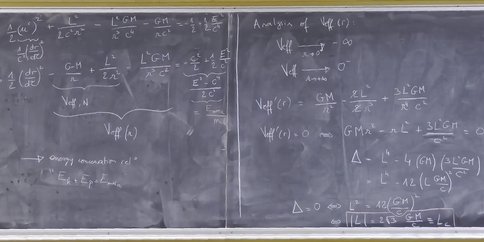 ½ (u¹)² + L²/2c²r² − L²GM/r³c⁴ − GM/rc² = −½ + ½ E²/c⁴
1/c² (dr/dτ)²
½ (dr/dτ)² − GM/r + L²/2r² − L²GM/r³c² = −c²/2 + ½ E²/c²
V_eff,N
E² − c⁴/2c²
V_eff(r)
→ energy conservation
E_k + E_p =
Analysis of V_eff(r):
V_eff → −∞
r→0
V_eff → 0⁻
r→+∞
V'_eff(r) = GM/r² − L²/r³ + 3L²GM/r⁴c²
V'_eff(r) = 0 ⟺ GMr² − rL² + 3L²GM/c² = 0
Δ = L⁴ − 4(GM)(3L²GM/c²)
= L⁴ − 12(L GM/c)²
Δ = 0 ⟺ L² = 12(GM/c)²
⟺ |L| = 2√3 GM/c ≡ L_c